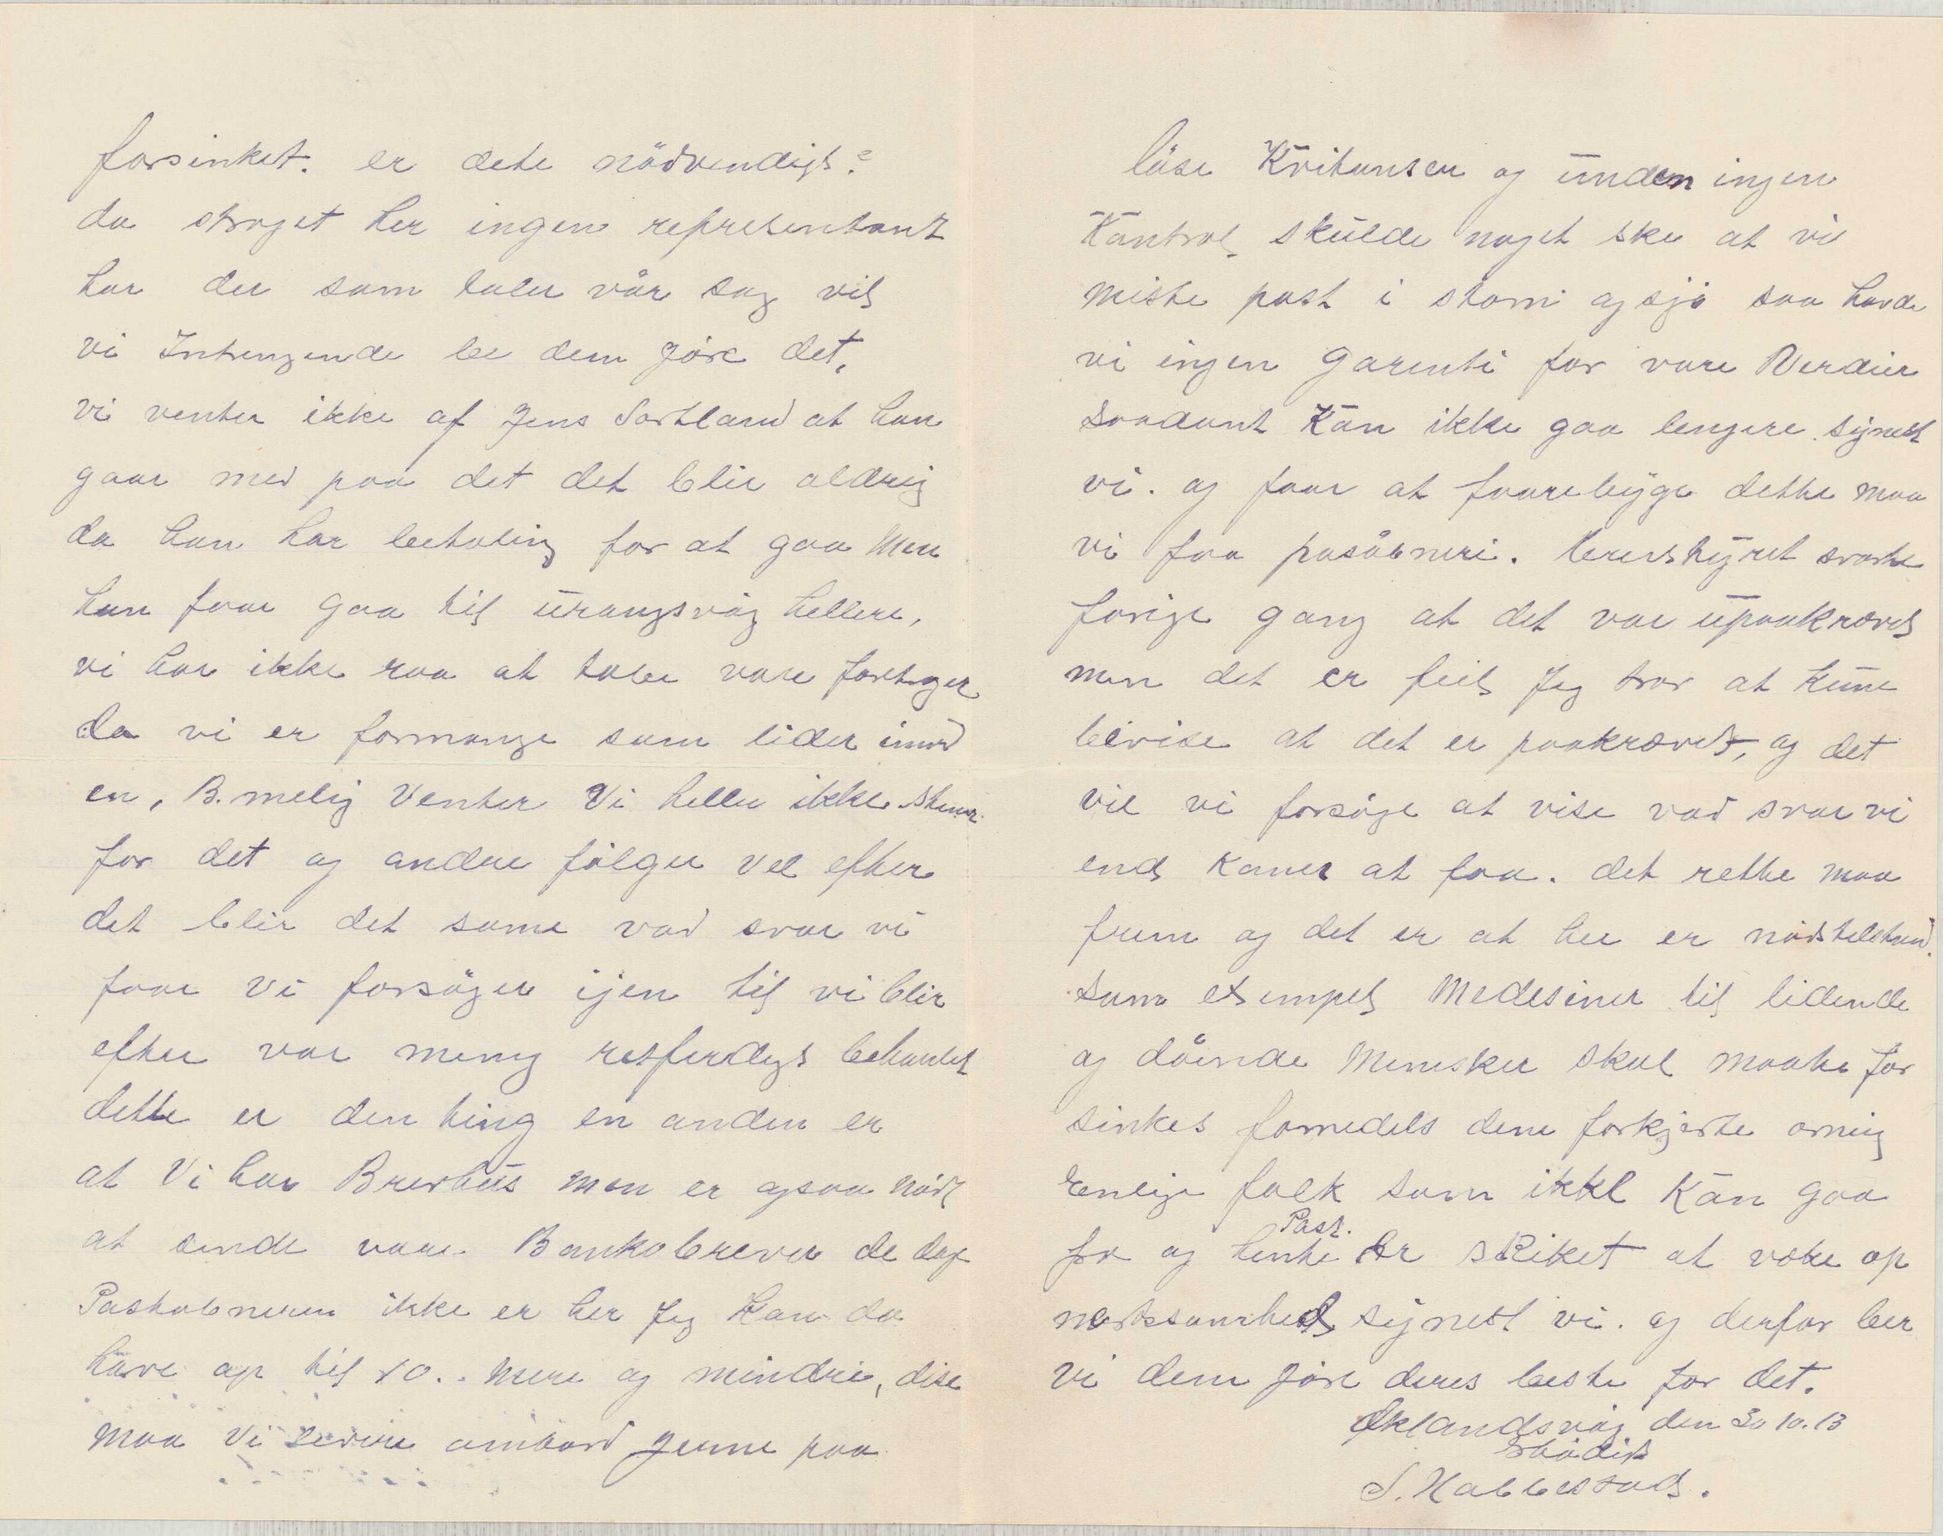 forsinket. er dete nödvendigt?
da strøget her ingen representant
har der som taler vår sag vil
vi Intrengende be dem göre det,
vi venter ikke af Jens Sortland at han
gaar med paa det det blir aldrig
da han har betaling for at gaa Men
han faar gaa til urangsvåg hellere,
vi har ikke raa at tabe vore fortager
da vi er formange som lider imod
en, B. melig Venter Vi heller ikke stemr
for det og andre fölger vel efter
det blir det same vad svar vi
faar Vi forsöger igen til vi blir
efter vor mening retferdigt behanlet
dette er den ting en anden er
at Vi har Brevhüs men er ogsaa nödt
at sende vaare Bankobrever de dage
Postaabneren ikke er her Jeg kan da
have op til 10.. mere og mindre, dise
maa Vi levere ombord gerne paa
löse Kvitanser og ünden ingen
Kontrol skülde noget ske at vi
miste post i storm og sjö saa havde
vi ingen garenti for vore Verdier
saadant Kan ikke gaa lengere synest
vi. og faar at faarebyge dette maa
vi faa posåbneri. brevstyret svarte
forige gang at det var üpaakrævet
men det er feil Jeg tror at küne
bevise at det er paakrævet, og det
vil vi forsöge at vise vad svar vi
end komer at faa. det rette maa
frem og det er at her er nödstilstand.
som eksempel Medesiner til lidende
og döende Menisker skal maate for
sinkes formedels dene forkjerte orning
Enlige folk som ikke Kan gaa
fra og hente Post. er skiket at væke op
merksomhed synest vi. og derfor ber
vi dem göre deres beste for det.
Øklandsvåg den 30 10. 13
Erbödigst
S. Habbestad.